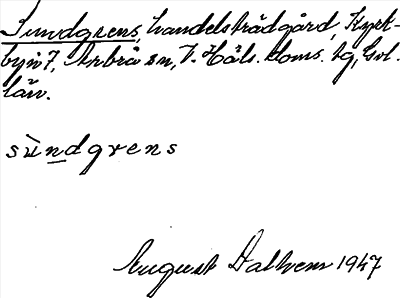 Sundgrens, handelsträdgård, Kyrk-
byn 7, Arbrå sn, V. Häls. doms. tg, Gvl.
län.
sùndgrens
August Dalhem 1947